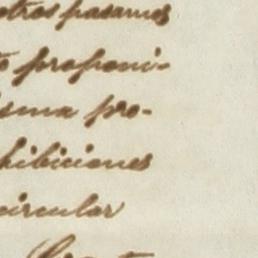 otros pasamos
proponi-
isma pro-
hibiciones
circular